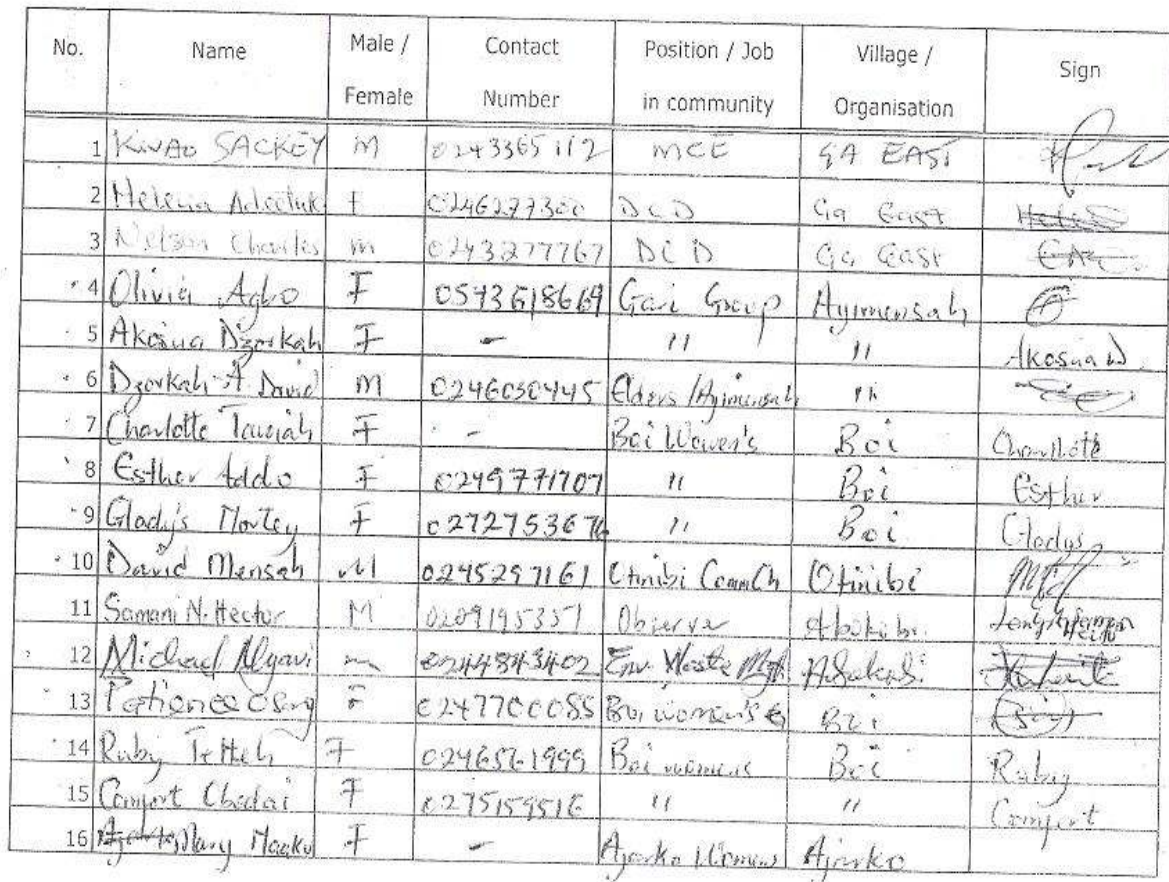 No. Name Male / Female Contact Number Position / Job in community Village / Organisation Sign
1 KWAO SACKEY M 0243365112 MCE GA EAST
2 Helena F 0246277300 DCD Ga East
3 Nelson Charles m 0243277767 DCD Ga East
4 Olivia Agbo F 0543618669 Gari Group Ayimensah
5 Akosua Dzorkah F - " " Akosua D.
6 Dzorkah A. David M 0246030445 Elders / Ayimensah "
7 Charlotte F - Boi Women's Boi Charllote
8 Esther Addo F 0249771707 " Boi Esther
9 Gladys Mortey F 0272753676 " Boi Gladys
10 David Mensah M 0245297161 Otinibi Comm Ch Otinibi
11 Samani N. Hector M 0209195351 Observer
12 Michael m 0244843402 Env. Waste Mgt.
13 Patience F 0247700085 Boi women's G Boi
14 Ruby Tetteh F Boi womens Boi Ruby
15 Comfort F 0275159516 " " Comfort
16 Mary F - Ajarko Womens Ajarko